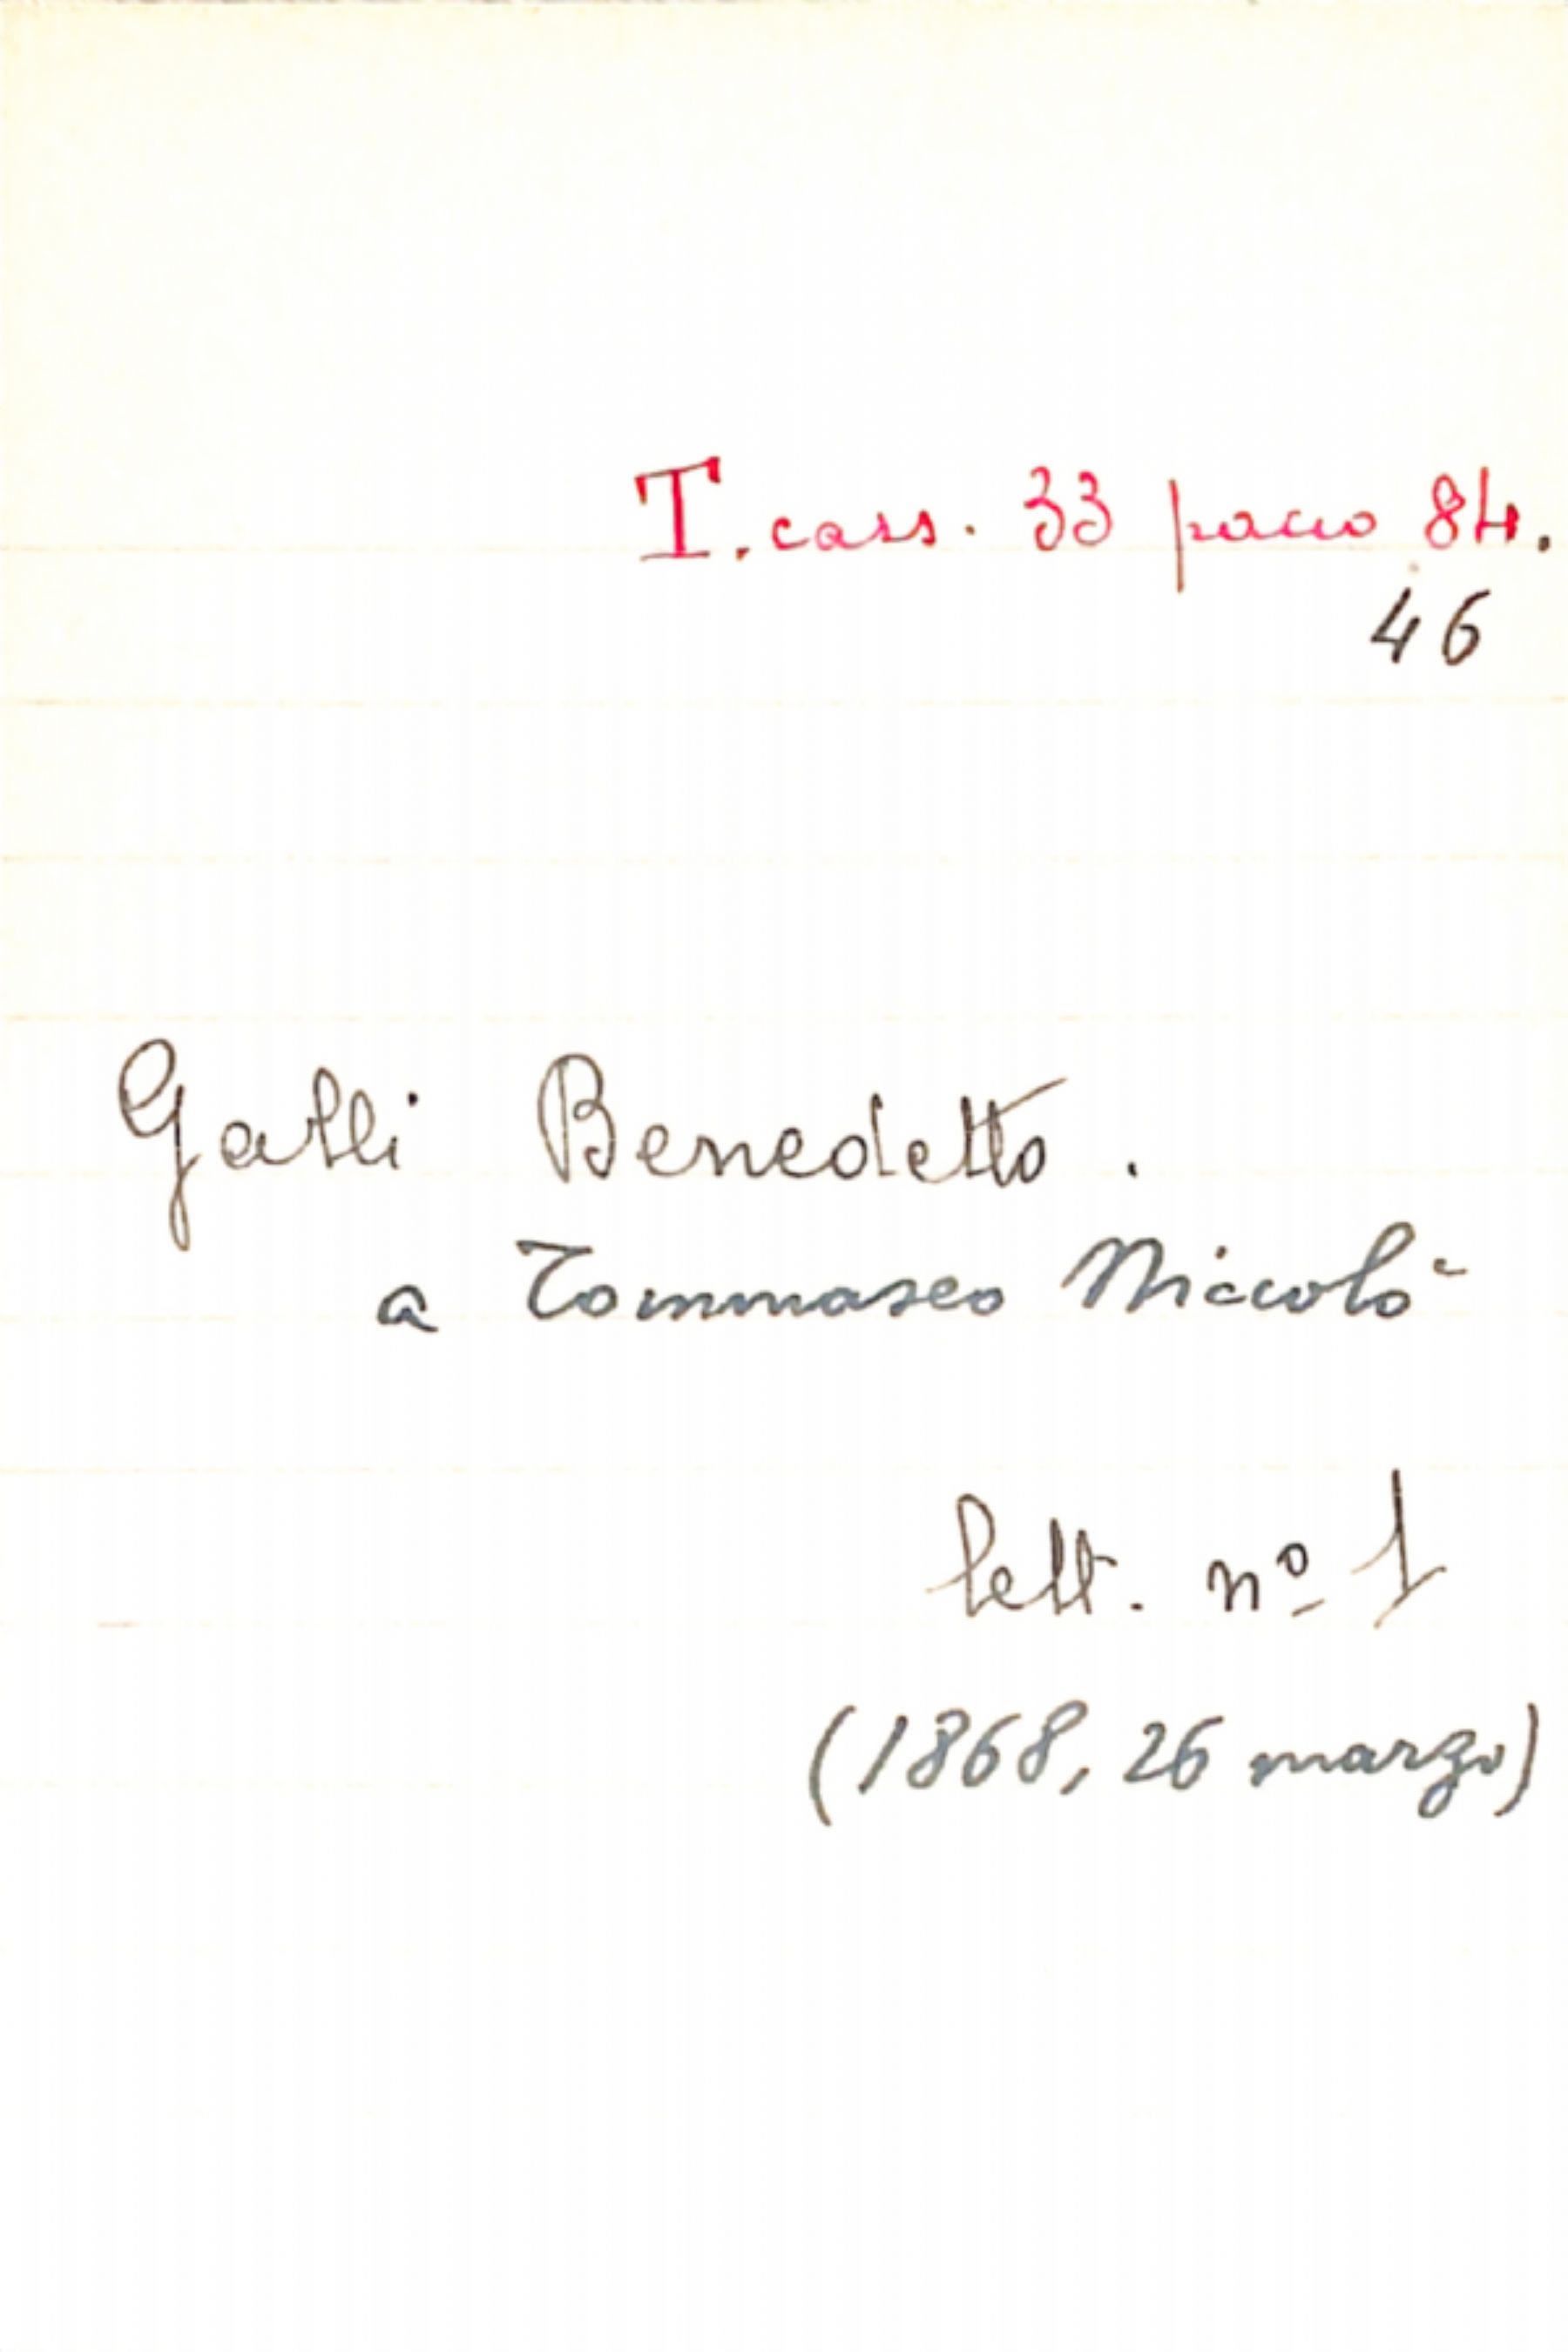 T. cass. 33 pacco 84.
46
Galli Benedetto.
a Tommaseo Niccolò
lett. nº 1
(1868, 26 marzo)